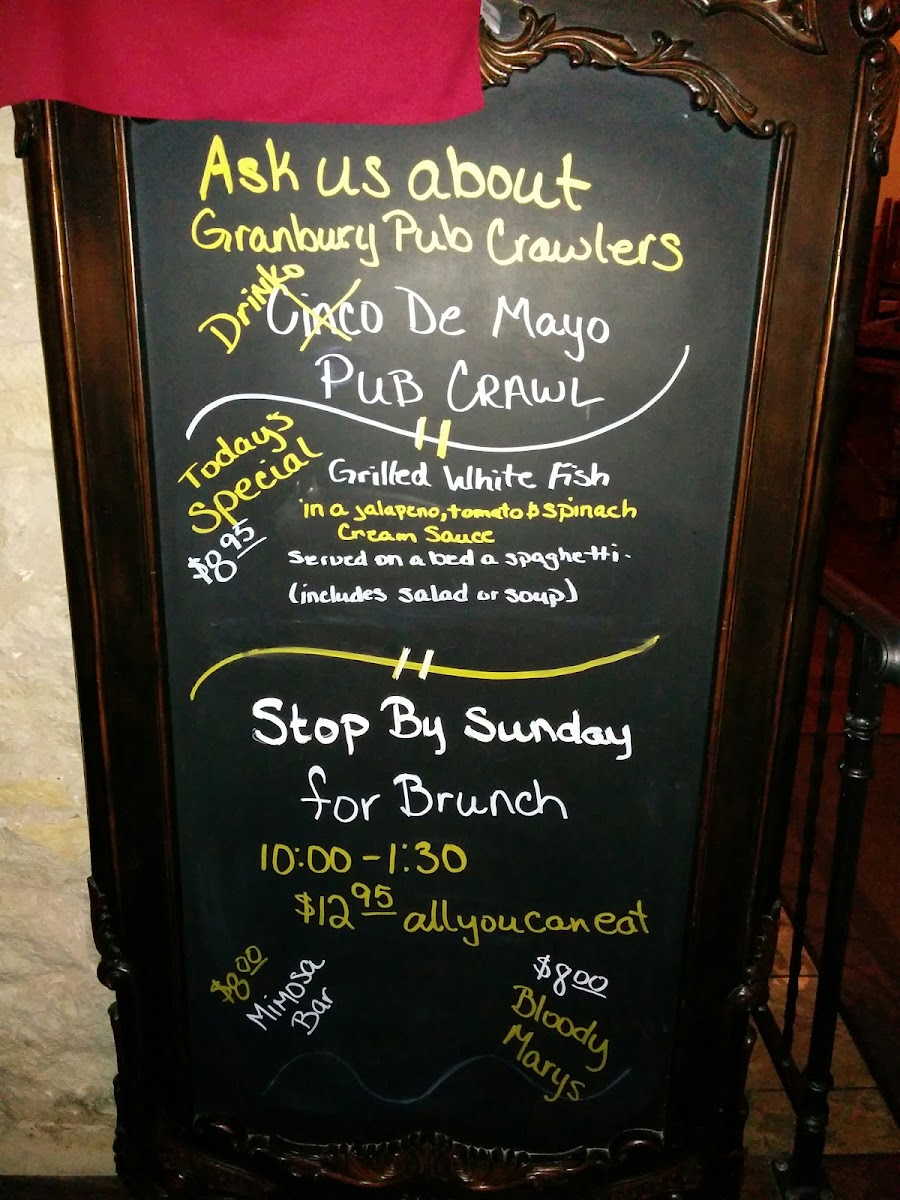 Ask us about
Granbury Pub Crawlers
Drinko
Cinco De Mayo
PUB CRAWL
Todays
Special
$8.95
Grilled White Fish
in a jalapeno, tomato & spinach
Cream Sauce
Served on a bed a spaghetti.
(includes salad or soup)
Stop By Sunday
for Brunch
10:00 - 1:30
$12.95 all you can eat
$8.00
Mimosa
Bar
$8.00
Bloody
Marys